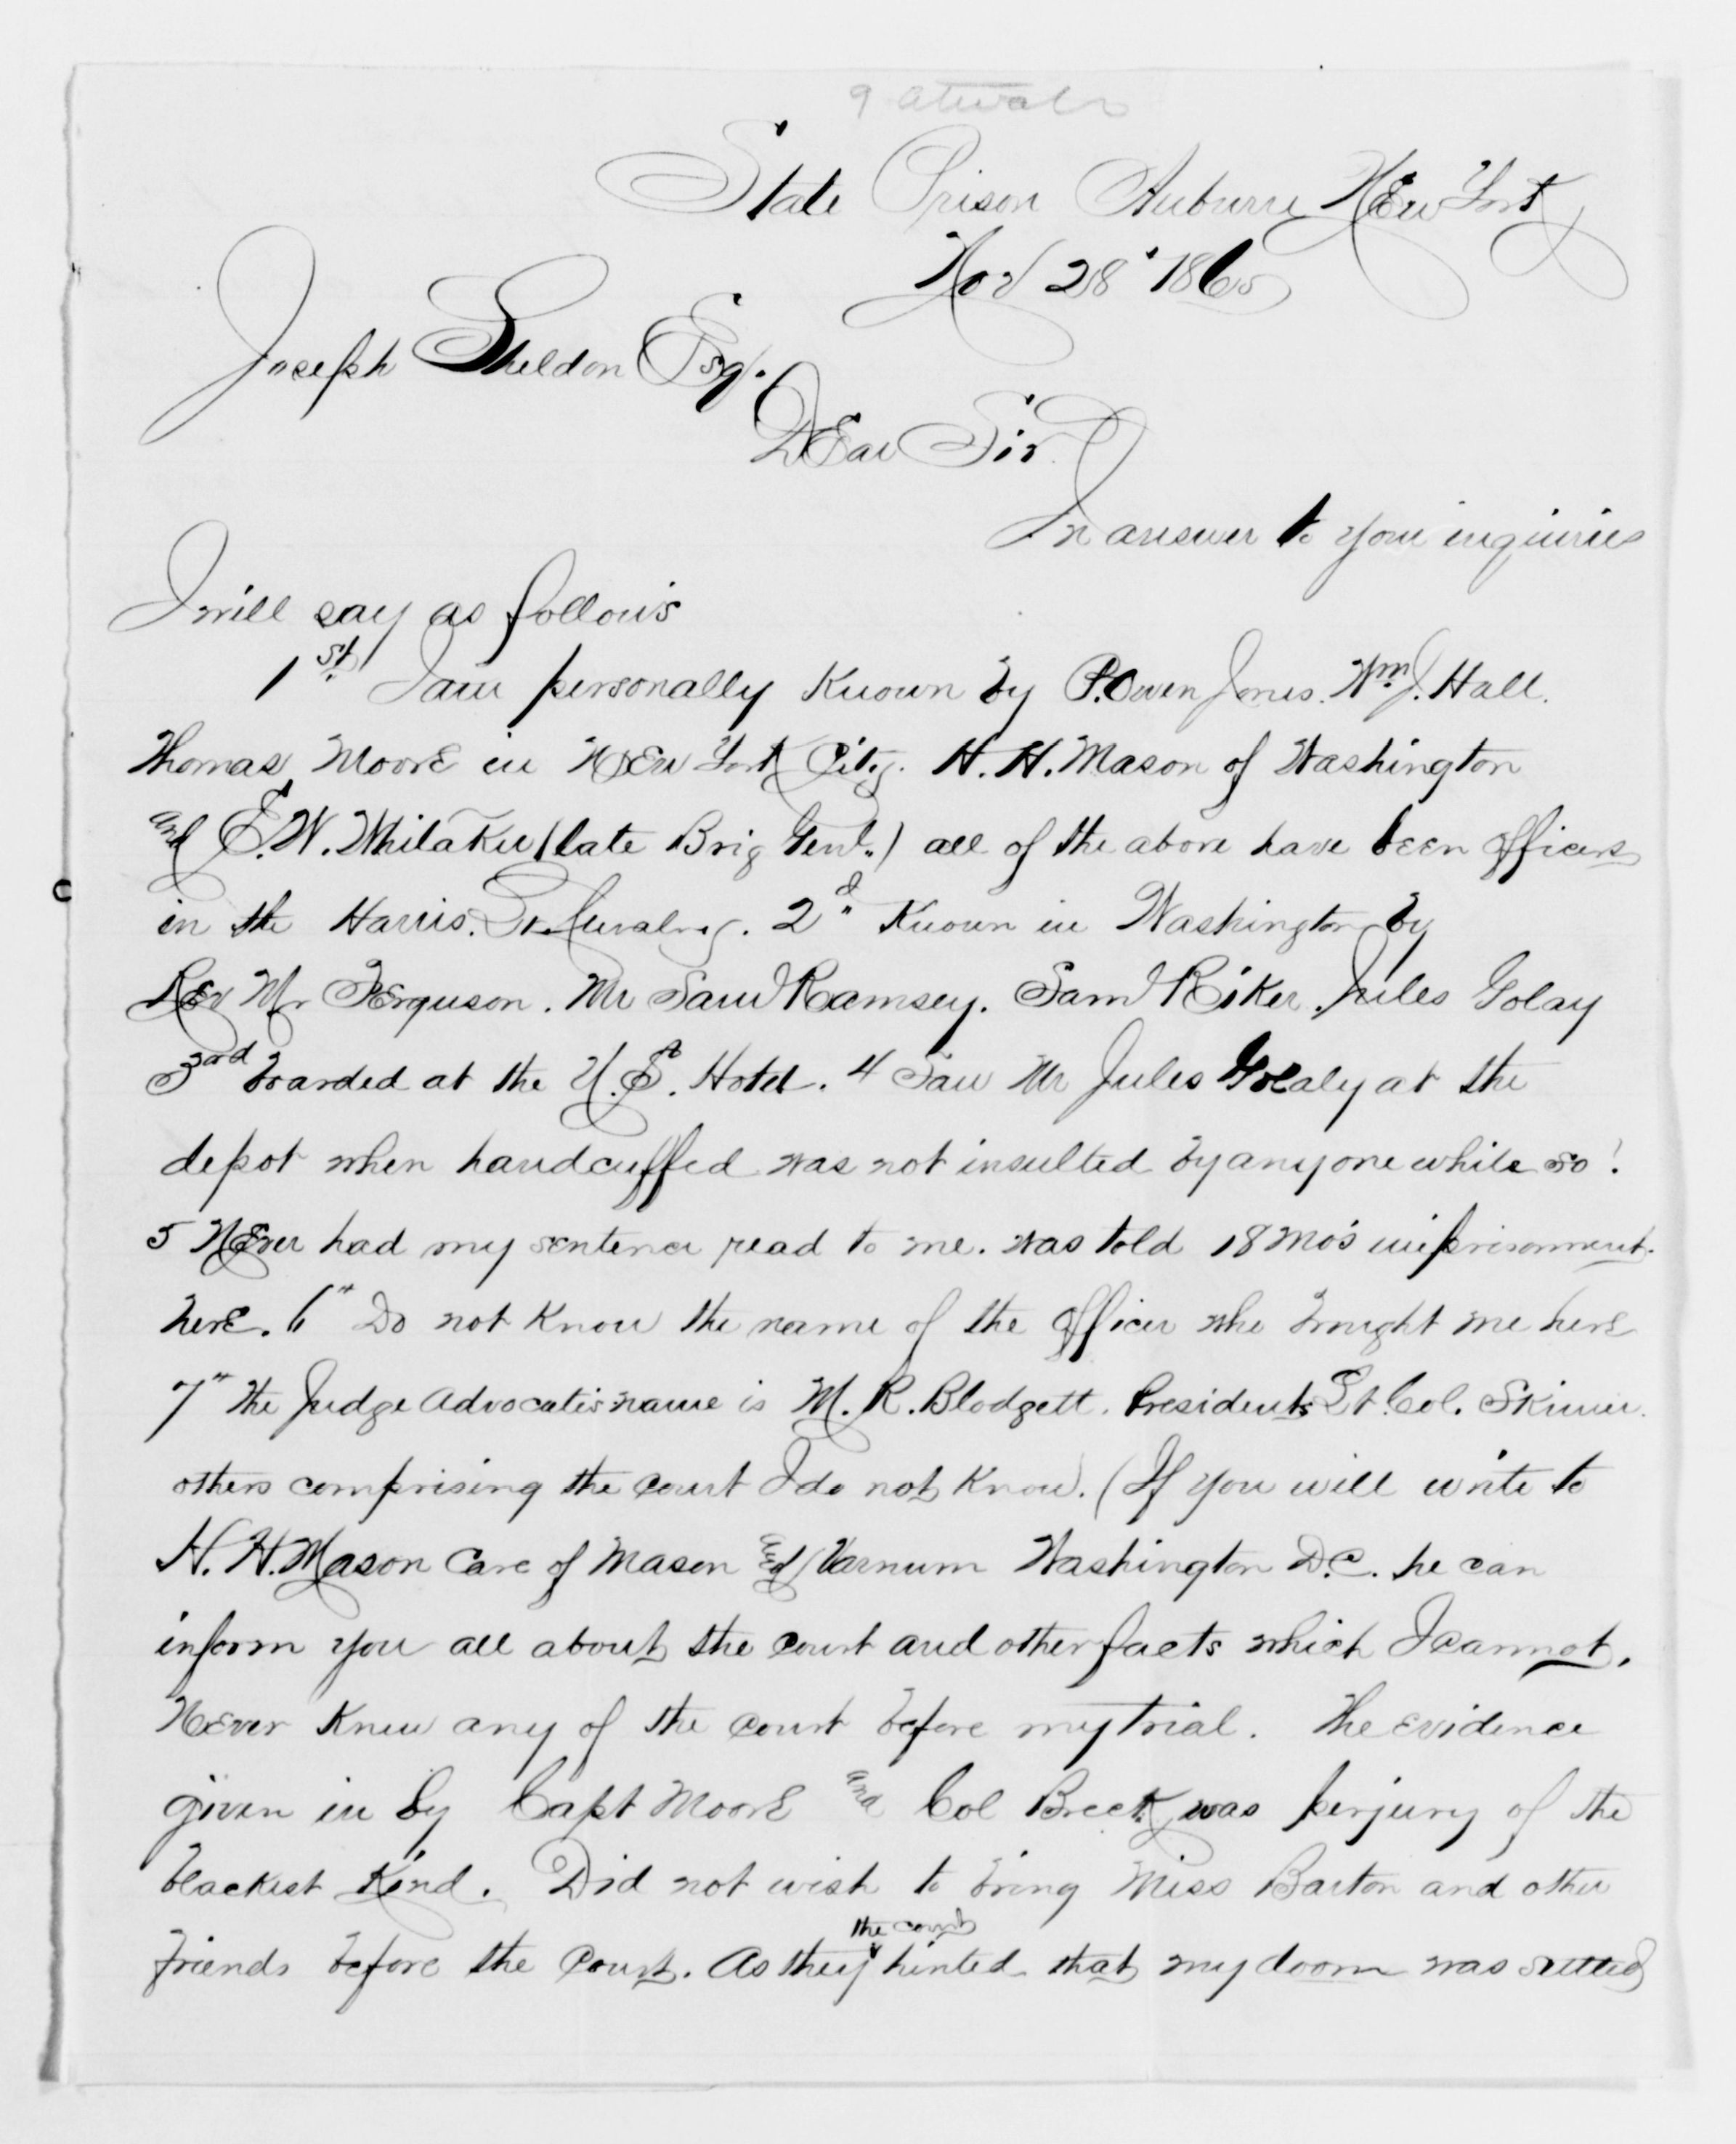 State Prison Auburn New York
Nov 28" 1865
Joseph Sheldon Esq.
Dear Sir
In answer to your inquiries
I will say as follows
1st. I am personally Known by P. Owen Jones. Wm. J. Hall.
Thomas Moore in New York City. H. H. Mason of Washington
and E. W. Whitaker (late Brig Genl.) all of the above have been officers
in the Harris. Lt. Cavalry. 2d" Known in Washington by
Rev Mr Ferguson. Mr Saml Ramsey. Saml Riker. Jules Golay
3rd boarded at the U. S. Hotel. 4 Saw Mr Jules Golay at the
depot when handcuffed was not insulted by any one while so!
5 Never had my sentence read to me. was told 18 mo's imprisonment.
here. 6" Do not Know the name of the officer who brought me here
7" the Judge Advocates name is M. R. Blodgett. President Lt. Col. Skinner.
others comprising the court I do not Know. (If you will write to
H. H. Mason Care of Mason and Varnum Washington D.C. he can
inform you all about the court and other facts which I cannot.
Never Knew any of the court before my trial. The evidence
given in by Capt Moore and Col Breck was perjury of the
blackest Kind. Did not wish to bring Miss Barton and other
friends before the Court. As they the court hinted that my doom was settled